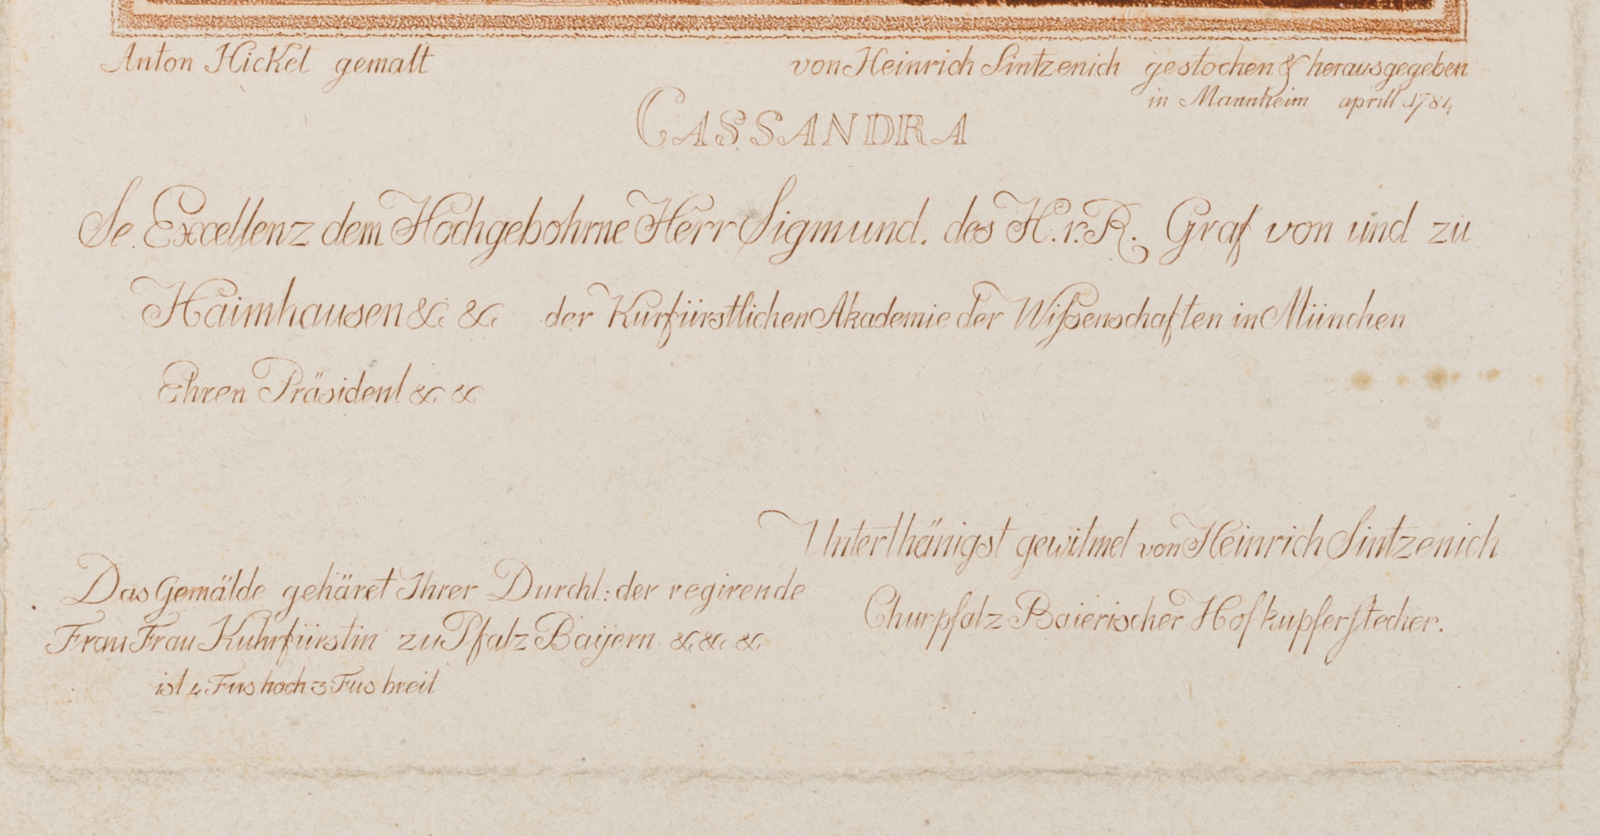 Anton Hickel gemalt
von Heinrich Sintzenich gestochen & herausgegeben
in Mannheim aprill 1784
CASSANDRA
Se. Excellenz dem Hochgebohrne Herr Sigmund. des H.r.R. Graf von und zu
Haimhausen &c &c der Kurfürstlichen Akademie der Wißenschaften in München
Ehren Präsident &c &c
Unterthänigst gewitmet von Heinrich Sintzenich
Churpfalz Baierischer Hofkupferstecher.
Das Gemälde gehäret Ihrer Durchl: der regirende
Frau Frau Kuhrfürstin zu Pfalz Baÿern &c &c &c
ist 4 Fus hoch 3 Fus breit